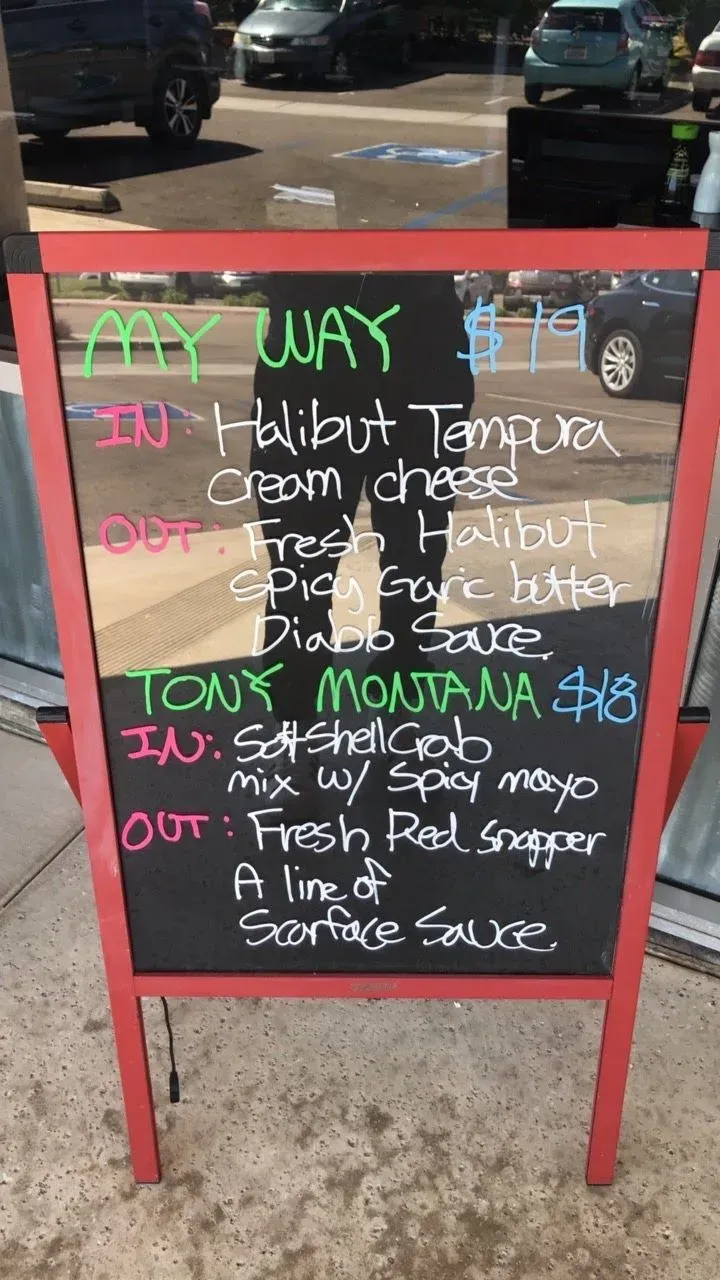 MY WAY $19
IN: Halibut Tempura
cream cheese
OUT: Fresh Halibut
Spicy Garic butter
Diablo Sauce.
TONY MONTANA $18
IN: Soft Shell Crab
mix w/ Spicy mayo
OUT: Fresh Red Snapper
A line of
Scarface Sauce.